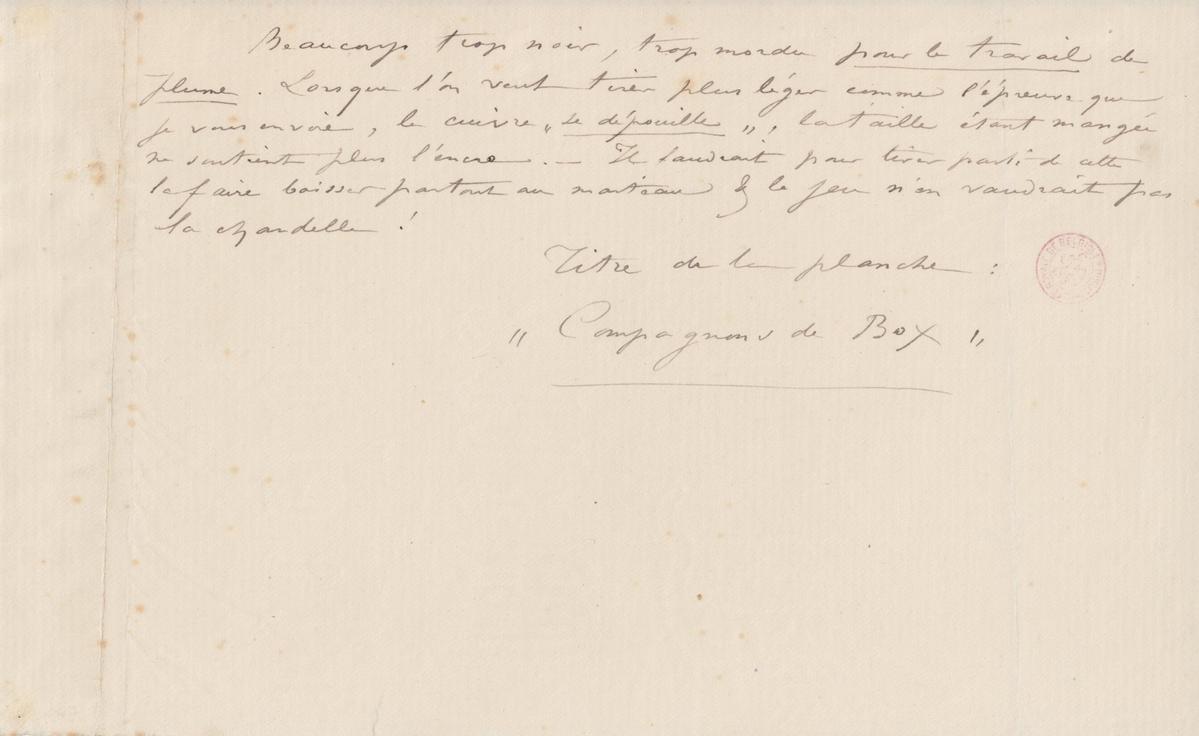 Beaucoup trop noir, trop mordu pour le travail de
plume. Lorsque l'on veut tirer plus léger comme l'épreuve que
je vous envoie, le cuivre „ se dépouille „, la taille étant mangée
ne soutient plus l'encre. — Il faudrait pour tirer parti de cette
la faire baisser partout au marteau & le jeu n'en vaudrait pas
la chandelle !
Titre de la planche :
„ Compagnons de Box „
DE BELGIQUE